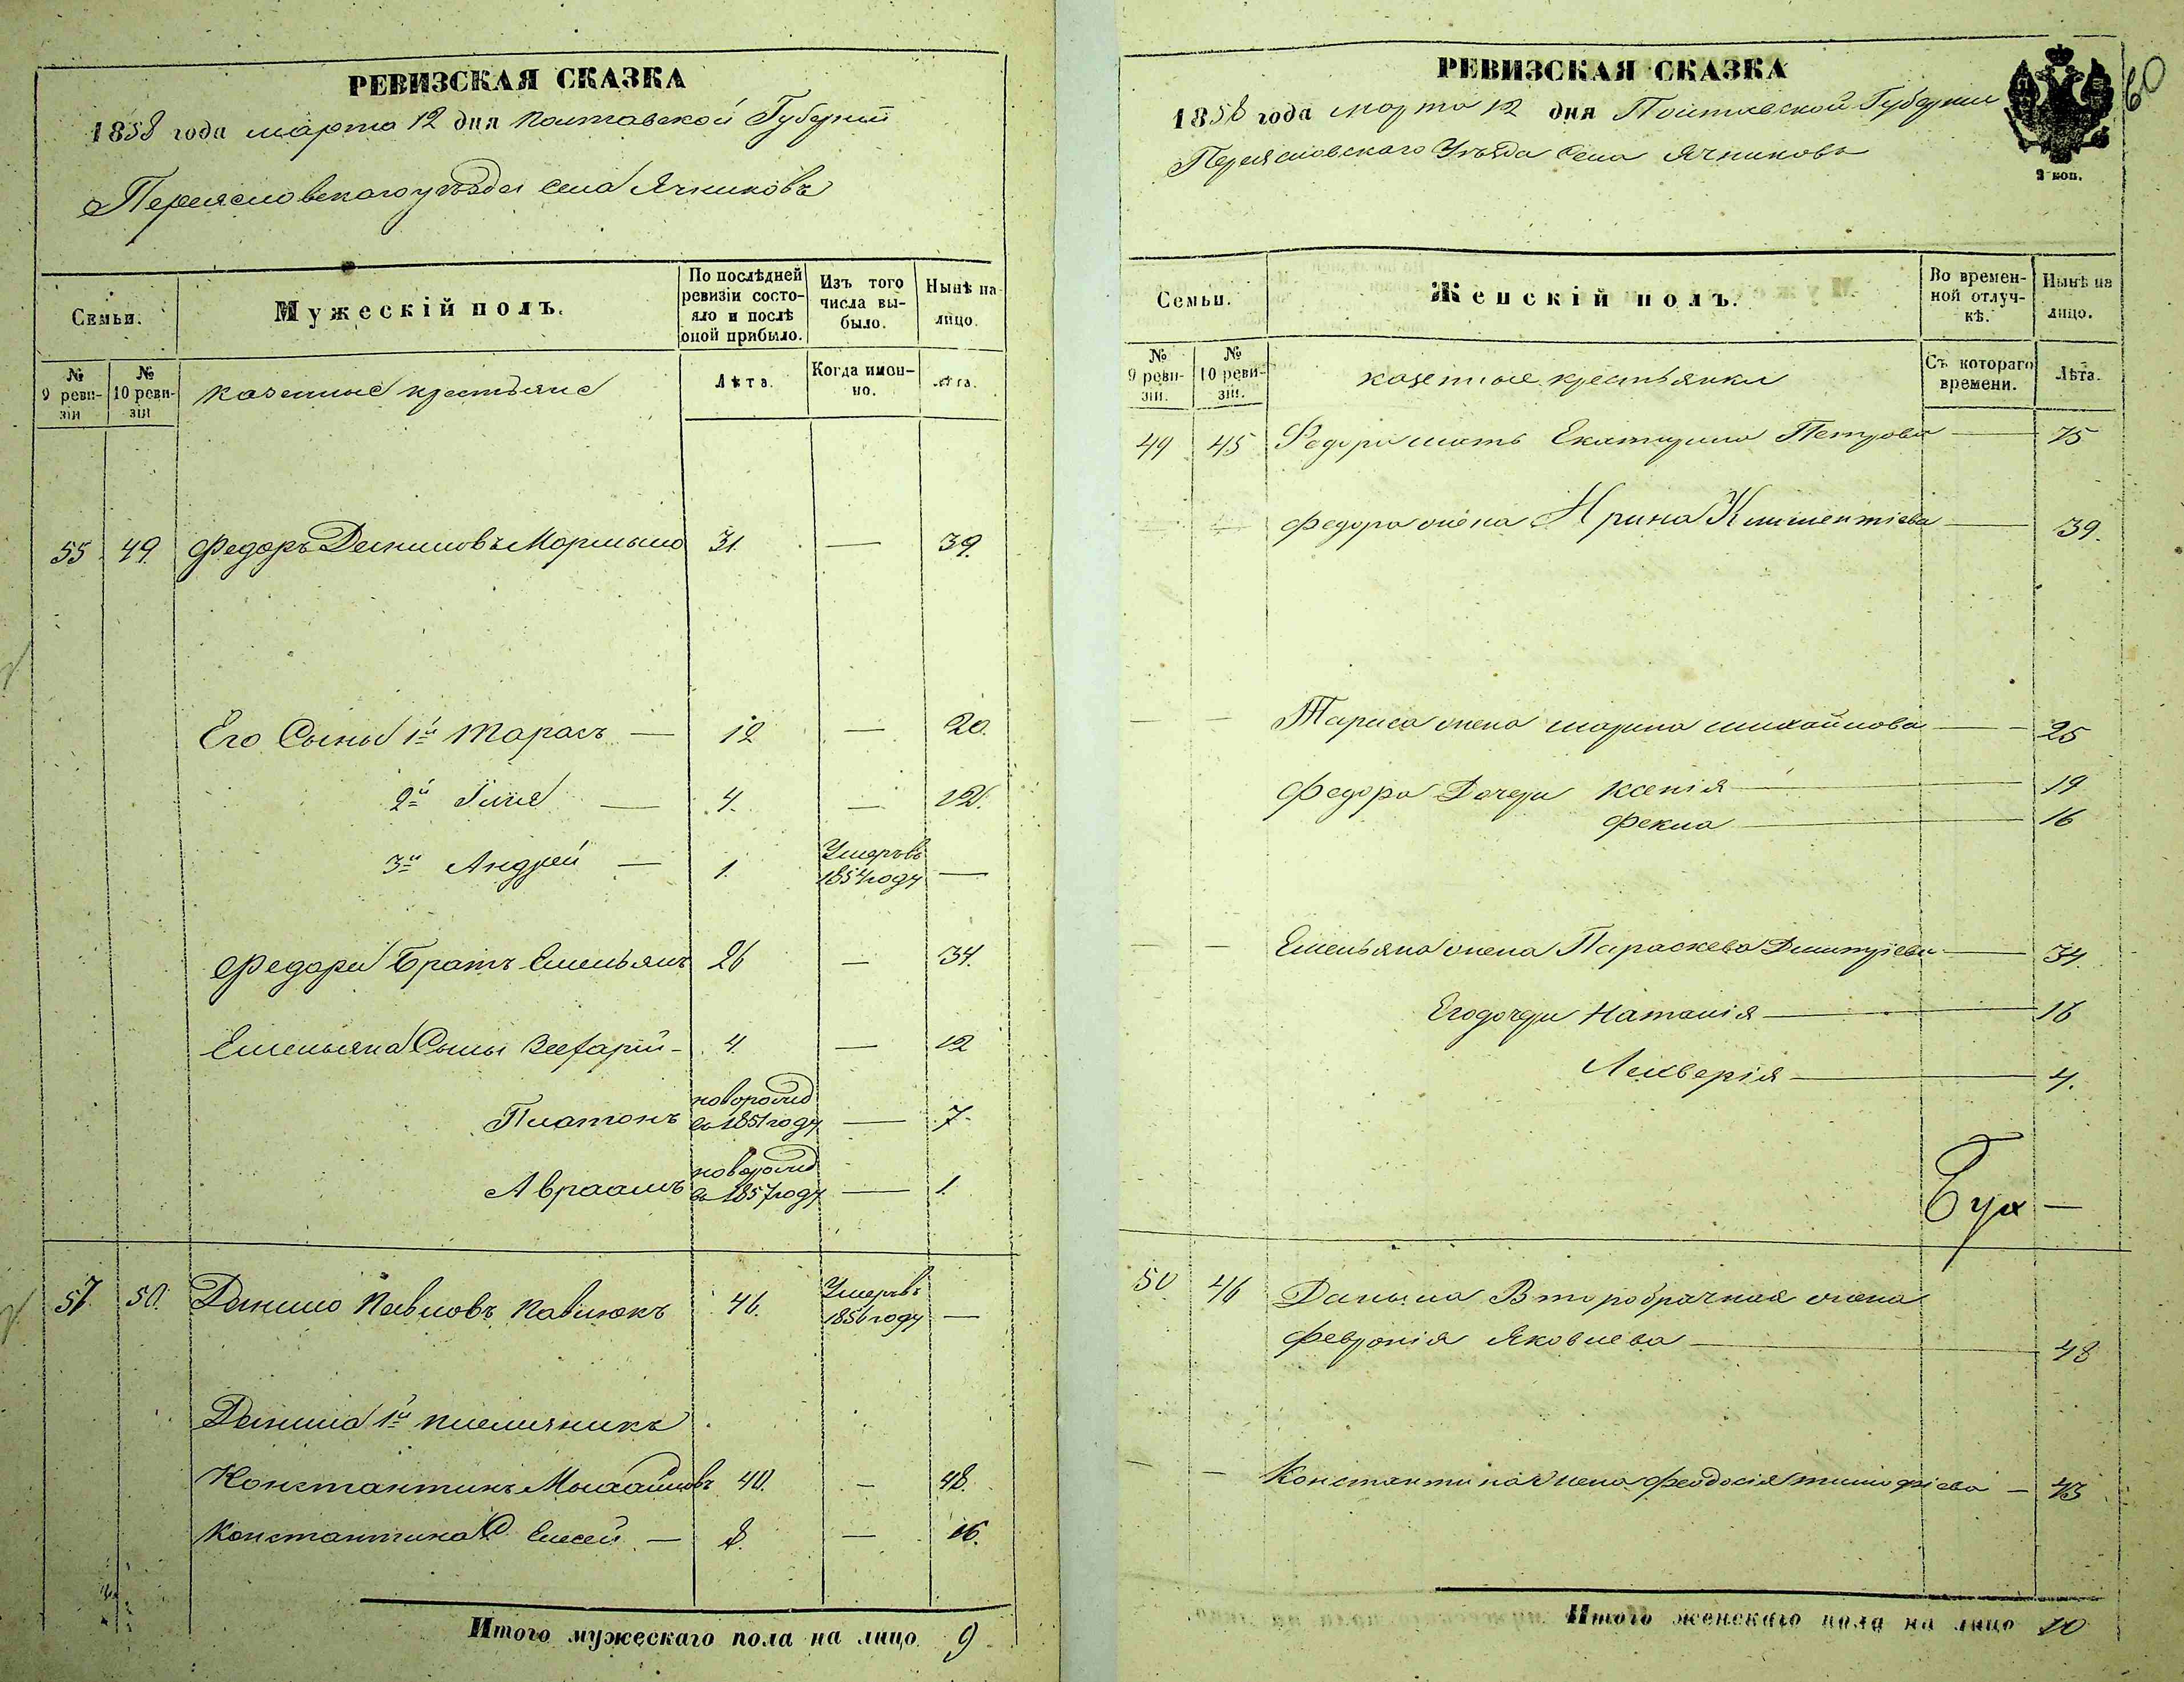 РЕВИЗСКАЯ СКАЗКА
1858 года марта 12 дня Полтавской Губернїи
Переясловскаго уѣзда села Ячниковъ
Семьи.
Мужескій полъ.
По послѣдней ревизіи состояло и послѣ оной прибыло.
Изъ того числа выбыло.
Нынѣ на лицо.
№ 9 ревизіи
№ 10 ревизіи
казенные крестьяне
Лѣта.
Когда имонно.
Лѣта.
55 49 Федоръ Даниловъ 31. — 39.
Его Сыны 1й Тарасъ — 12 — 20.
2й Илья — 4. — 12.
3й Андрей — 1. Умеръ въ 1854 году —
Федора Братъ Емельянъ 26 — 34.
Емельяна Сыны — 4. — 12
Платонъ новорожд въ 1851 году — 7.
Авраамъ новорожд въ 1857 году — 1.
50. Данило Павловъ Павлюкъ 46. Умеръ въ 1856 году —
Данила 1й племянникъ
Константинъ Михайловъ 40. — 48.
Константина С. Елесей — 8. — 16.
Итого мужескаго пола на лицо. 9
РЕВИЗСКАЯ СКАЗКА
60
1858 года марта 12 дня Полтавской Губернии
Переясловскаго Уѣзда села Ячниковъ
2 коп.
Семьи.
Женскій полъ.
Во временной отлучкѣ.
Нынѣ на лицо.
№ 9 ревизіи.
№ 10 ревизіи.
казенные крестьянки
Съ котораго времени.
Лѣта.
49 45 Федора мать Екатерина Петрова — 75
Федора жена Ирина Климентіева — 39.
— — Тараса жена марина михайлова — 25
Федора Дочери Ксенія — 19
Фекла — 16
— — Емельяна жена Параскева Дмитріева — 34.
Его дочери Наталія — 16
— 4.
—
50 46 Данила Второбрачная жена
Февронія Яковлева — 48
— — Константина жена Феодосія тимофіева — 43
Итого женскаго пола на лицо 10